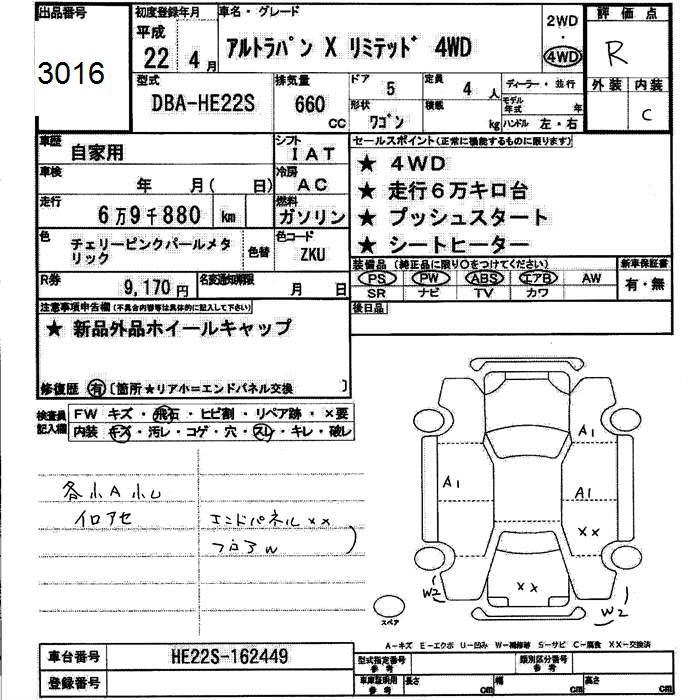 出品番号
3016
初度登録年月
平成
22 4月
車名・グレード
アルトラパン X リミテッド 4WD
2WD
・
4WD
評価点
R
外装 内装
C
型式
DBA-HE22S
排気量
660
CC
ドア 5
定員 4 人
形状 ワゴン
積載 kg
ディーラー・並行
モデル年式 年
ハンドル 左・右
車歴
自家用
シフト
IAT
車検
年 月( 日)
冷房
AC
走行
6万9千880 km
燃料
ガソリン
色
チェリーピンクパールメタリック
色替
色コード
ZKU
R券
9,170円
名変通知期限
月 日
セールスポイント(正常に機能するものに限ります)
★ 4WD
★ 走行6万キロ台
★ プッシュスタート
★ シートヒーター
装備品(純正品に限り○をつけてください)
PS PW ABS エアB AW
SR ナビ TV カワ
新車保証書
有・無
後日品
注意事項申告欄(不具合内容等は具体的に記入して下さい)
★ 新品外品ホイールキャップ
修復歴 有 [箇所★リアホ=エンドパネル交換 ]
検査員記入欄
FW キズ・飛石・ヒビ割・リペア跡・×要
内装 キズ・汚レ・コゲ・穴・スレ・キレ・破レ
各小A小U
イロアセ
エンドパネル××
フロアW
A1
A1
A1
××
××
W2
W2
スペア
A-キズ E-エクボ U-凹み W-補修等 S-サビ C-腐食 XX-交換済
車台番号 HE22S-162449
登録番号
型式指定番号
参考
類別区分番号
参考
車庫証明用
参考
長さ cm
幅 cm
高さ cm